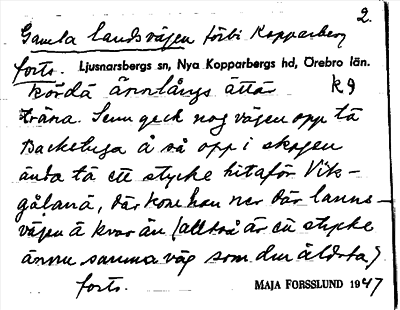 2.
Gamla landsvägen förbi Kopparberg
forts. Ljusnarsbergs sn, Nya Kopparbergs hd, Örebro län.
kördä ännlångs ättär k9
träna. Senn geck nog vägen opp tä
Backetuga å så opp i skogen
ända tä ett stycke hitaför Vik-
gålanä, där kom han ner där lanns-
vägen ä kvar än (alltså är ett stycke
ännu samma väg som den äldsta)
forts. MAJA FORSSLUND 1947